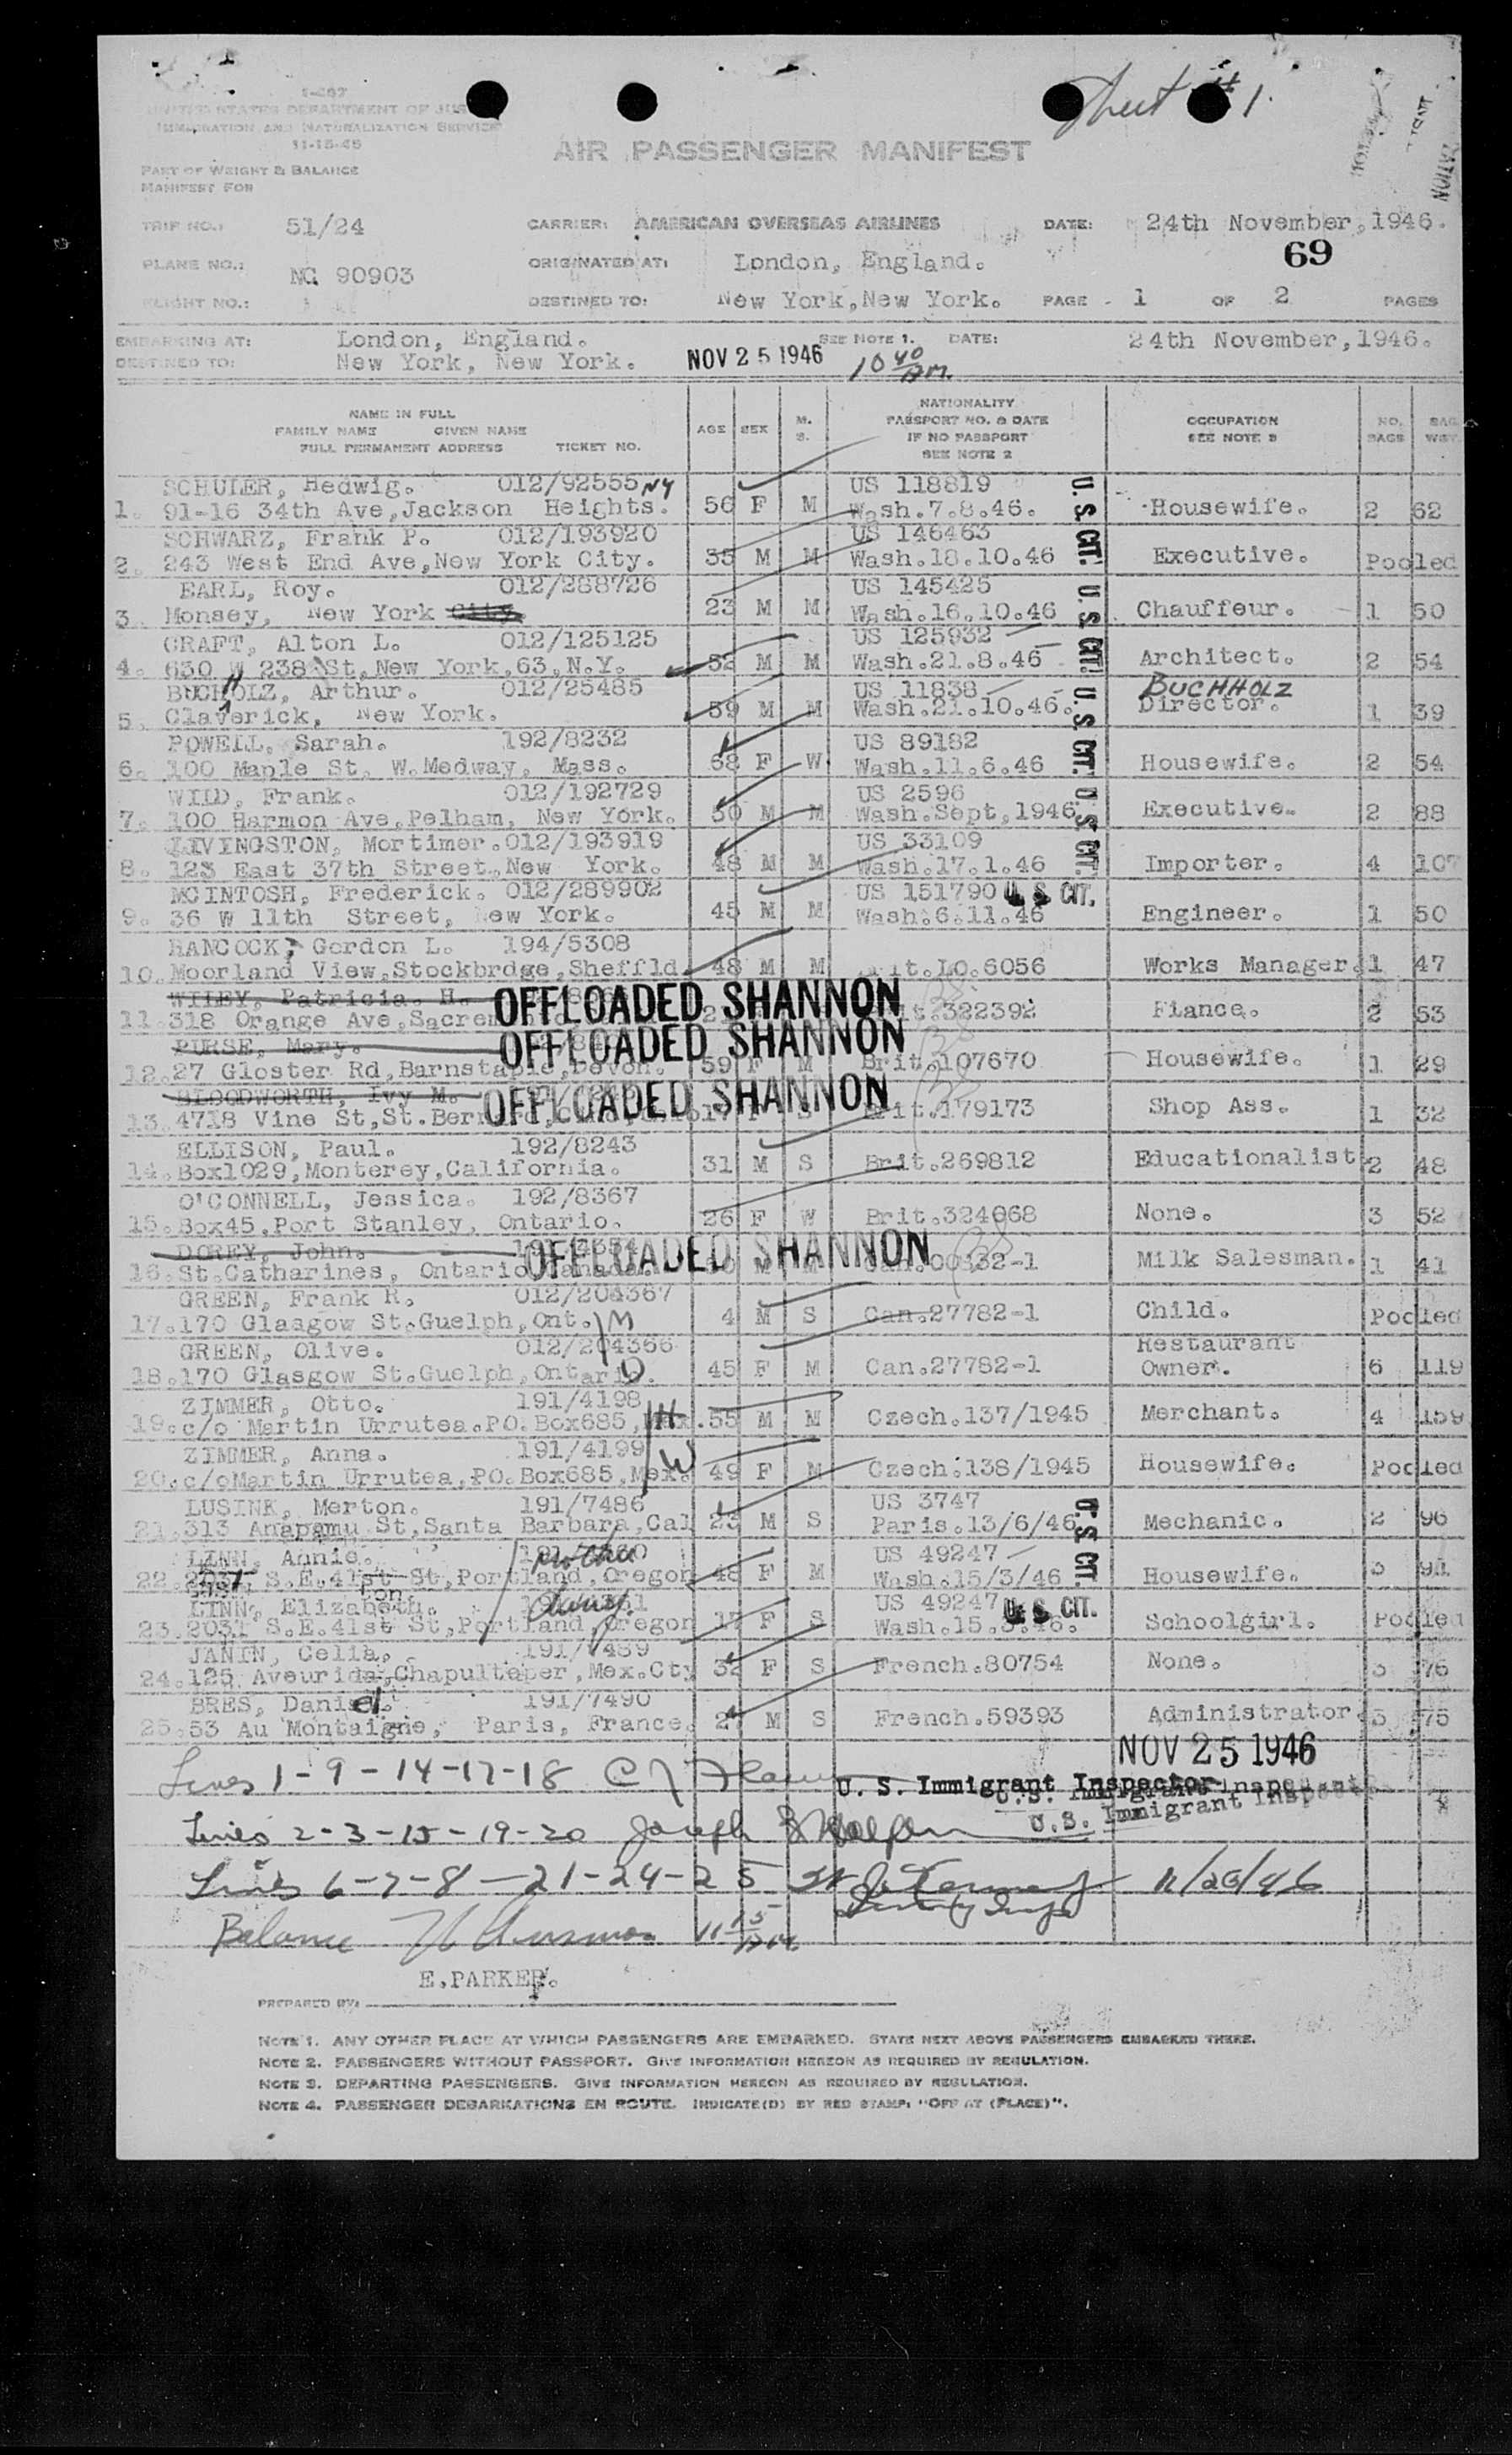 Sheet # 1.
I-467
UNITED STATES DEPARTMENT OF JUS
IMMIGRATION AND NATURALIZATION SERVICE
11-15-45
AIR PASSENGER MANIFEST
PART OF WEIGHT & BALANCE
MANIFEST FOR
TRIP NO.: 51/24 CARRIER: AMERICAN OVERSEAS AIRLINES DATE: 24th November, 1946.
69
PLANE NO.: NC 90903 ORIGINATED AT: London, England.
FLIGHT NO.: DESTINED TO: New York, New York. PAGE 1 OF 2 PAGES
EMBARKING AT: London, England. SEE NOTE 1. DATE: 24th November, 1946.
DESTINED TO: New York, New York. NOV 25 1946 10 40 AM.
NAME IN FULL
FAMILY NAME GIVEN NAME
FULL PERMANENT ADDRESS TICKET NO.
AGE SEX M. S.
NATIONALITY
PASSPORT NO. & DATE
IF NO PASSPORT
SEE NOTE 2
OCCUPATION
SEE NOTE 3
NO. BAGS
BAG. WGT.
SCHULER, Hedwig. 012/92555 NY US 118819
1. 91-16 34th Ave, Jackson Heights. 56 F M Wash.7.8.46. U. S. CIT. Housewife. 2 62
SCHWARZ, Frank P. 012/193920 US 146463
2. 243 West End Ave, New York City. 35 M M Wash.18.10.46 Executive. Pooled
EARL, Roy. 012/288726 US 145425
3. Monsey, New York City 23 M M Wash.16.10.46 U. S. CIT. Chauffeur. 1 50
CRAFT, Alton L. 012/125125 US 125932
4. 630 W 238 St, New York, 63, N.Y. 52 M M Wash.21.8.46 Architect. 2 54
BUCHHOLZ, Arthur. 012/25485 US 11838 BUCHHOLZ
5. Claverick, New York. 59 M M Wash.21.10.46. U. S. CIT. Director. 1 39
POWELL, Sarah. 192/8232 US 89182
6. 100 Maple St, W.Medway, Mass. 68 F W Wash.11.6.46 Housewife. 2 54
WILD, Frank. 012/192729 US 2596
7. 100 Harmon Ave, Pelham, New York. 50 M M Wash.Sept, 1946 U. S. CIT. Executive. 2 88
LIVINGSTON, Mortimer. 012/193919 US 33109
8. 123 East 37th Street, New York. 48 M M Wash.17.1.46 Importer. 4 107
MCINTOSH, Frederick. 012/289902 US 151790 U. S. CIT.
9. 36 W 11th Street, New York. 45 M M Wash.6.11.46 Engineer. 1 50
HANCOCK, Gordon L. 194/5308
10. Moorland View, Stockbrdge, Sheffld 48 M M Brit.LO.6056 Works Manager. 1 47
WILEY, Patricia. H. OFFLOADED SHANNON
11. 318 Orange Ave, Sacrem 322392 Fiance. 2 53
PURSE, Mary. OFFLOADED SHANNON
12. 27 Gloster Rd, Barnstaple, Devon. 59 F M Brit.107670 Housewife. 1 29
BLOODWORTH, Ivy M. OFFLOADED SHANNON
13. 4718 Vine St, St.Ber Brit.179173 Shop Ass. 1 32
ELLISON, Paul. 192/8243
14. Box1029, Monterey, California. 31 M S Brit.269812 Educationalist 2 48
O'CONNELL, Jessica. 192/8367
15. Box45, Port Stanley, Ontario. 26 F W Brit.324068 None. 3 52
DOREY, John. OFFLOADED SHANNON
16. St.Catharines, Ontario Canada. Can.00332-1 Milk Salesman. 1 41
GREEN, Frank R. 012/204367
17. 170 Glasgow St. Guelph, Ont. M 4 M S Can.27782-1 Child. Pooled
GREEN, Olive. 012/204366 Restaurant
18. 170 Glasgow St. Guelph, Ontario. 45 F M Can.27782-1 Owner. 6 119
ZIMMER, Otto. 191/4198
19. c/o Martin Urrutea. P.O. Box685, H 55 M M Czech.137/1945 Merchant. 4 159
ZIMMER, Anna. 191/4199
20. c/o Martin Urrutea, P.O. Box685, Mex. W 49 F M Czech.138/1945 Housewife. Pooled
LUSINK, Merton. 191/7486 US 3747
21. 313 Anapamu St, Santa Barbara, Cal 23 M S Paris.13/6/46 U. S. CIT. Mechanic. 2 96
LINN, Annie. Mother US 49247
22. 2031 S.E.41st St, Portland, Oregon 48 F M Wash.15/3/46 Housewife. 3 91
LINN, Elizabeth. US 49247 U. S. CIT.
23. 2031 S.E.41st St, Portland, Oregon 17 F S Wash.15.3.46. Schoolgirl. Pooled
JANIN, Celia. 191/7489
24. 125 Aveurida, Chapulteper, Mex.Cty 32 F S French.80754 None. 3 76
BRES, Daniel. 191/7490
25. 53 Au Montaigne, Paris, France. 27 M S French.59393 Administrator. 3 75
NOV 25 1946
Lines 1-9-14-17-18 U. S. Immigrant Inspector
Lines 2-3-15-19-20 Joseph U. S. Immigrant Inspector
Lines 6-7-8-21-24-25 11/25/46
Balance 11 15 AM.
E. PARKER.
PREPARED BY:
NOTE 1. ANY OTHER PLACE AT WHICH PASSENGERS ARE EMBARKED. STATE NEXT ABOVE PASSENGERS EMBARKED THERE.
NOTE 2. PASSENGERS WITHOUT PASSPORT. GIVE INFORMATION HEREON AS REQUIRED BY REGULATION.
NOTE 3. DEPARTING PASSENGERS. GIVE INFORMATION HEREON AS REQUIRED BY REGULATION.
NOTE 4. PASSENGER DEBARKATIONS EN ROUTE. INDICATE(D) BY RED STAMP: "OFF AT (PLACE)".